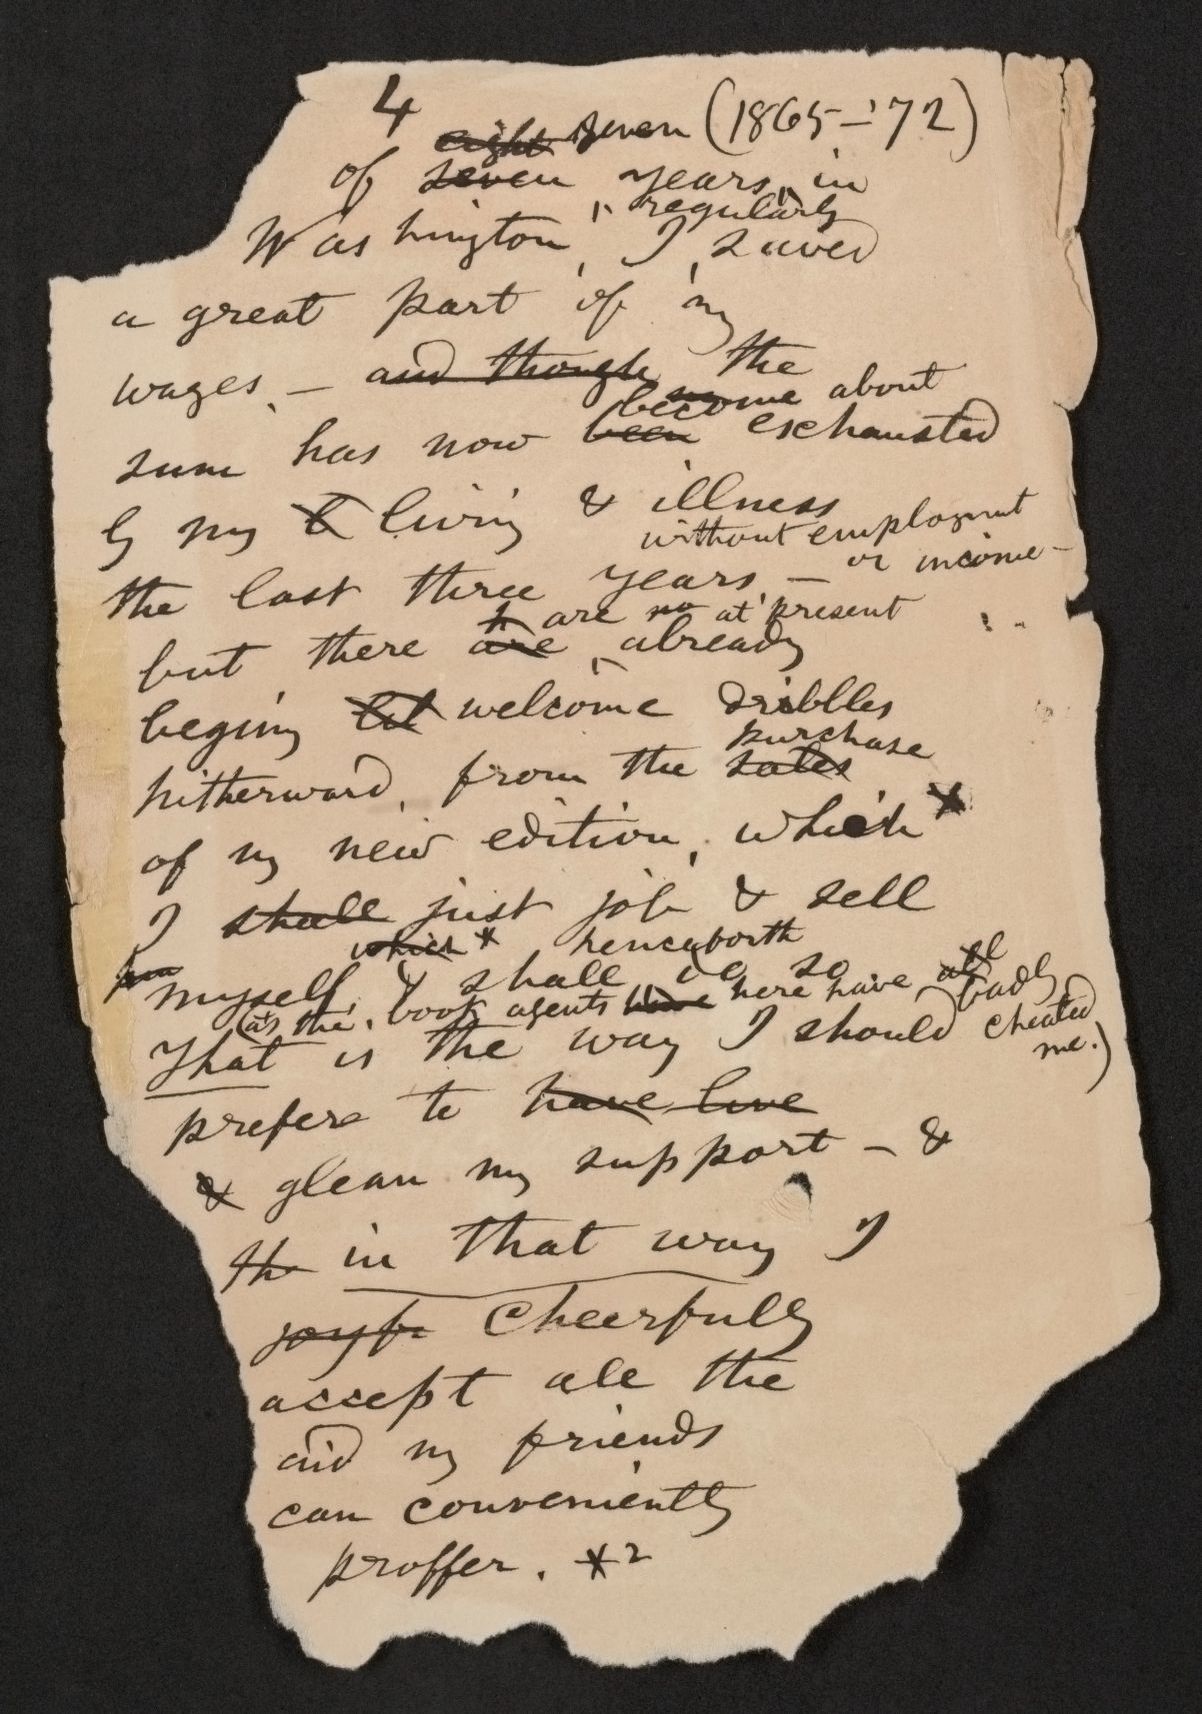 4
eight seven (1865–'72)
of seven years, in
regularly
Washington, I, saved
a great part of my
wages – and though the
become about
sum has now been exhausted
by my living & illness
without employment
or income –
the last three years –
are no at present
but there are already
begin'g welcome dribbles
purchase
hitherward, from the sales
of my new edition, which *
I shall just job & sell
which * henceforth
myself, & shall be so
(as the book agents have here have all badly
cheated
me.)
That is the way I should
prefer to have live
& glean my support – &
th in that way I
joyf cheerfully
accept all the
aid my friends
can conveniently
proffer. *2